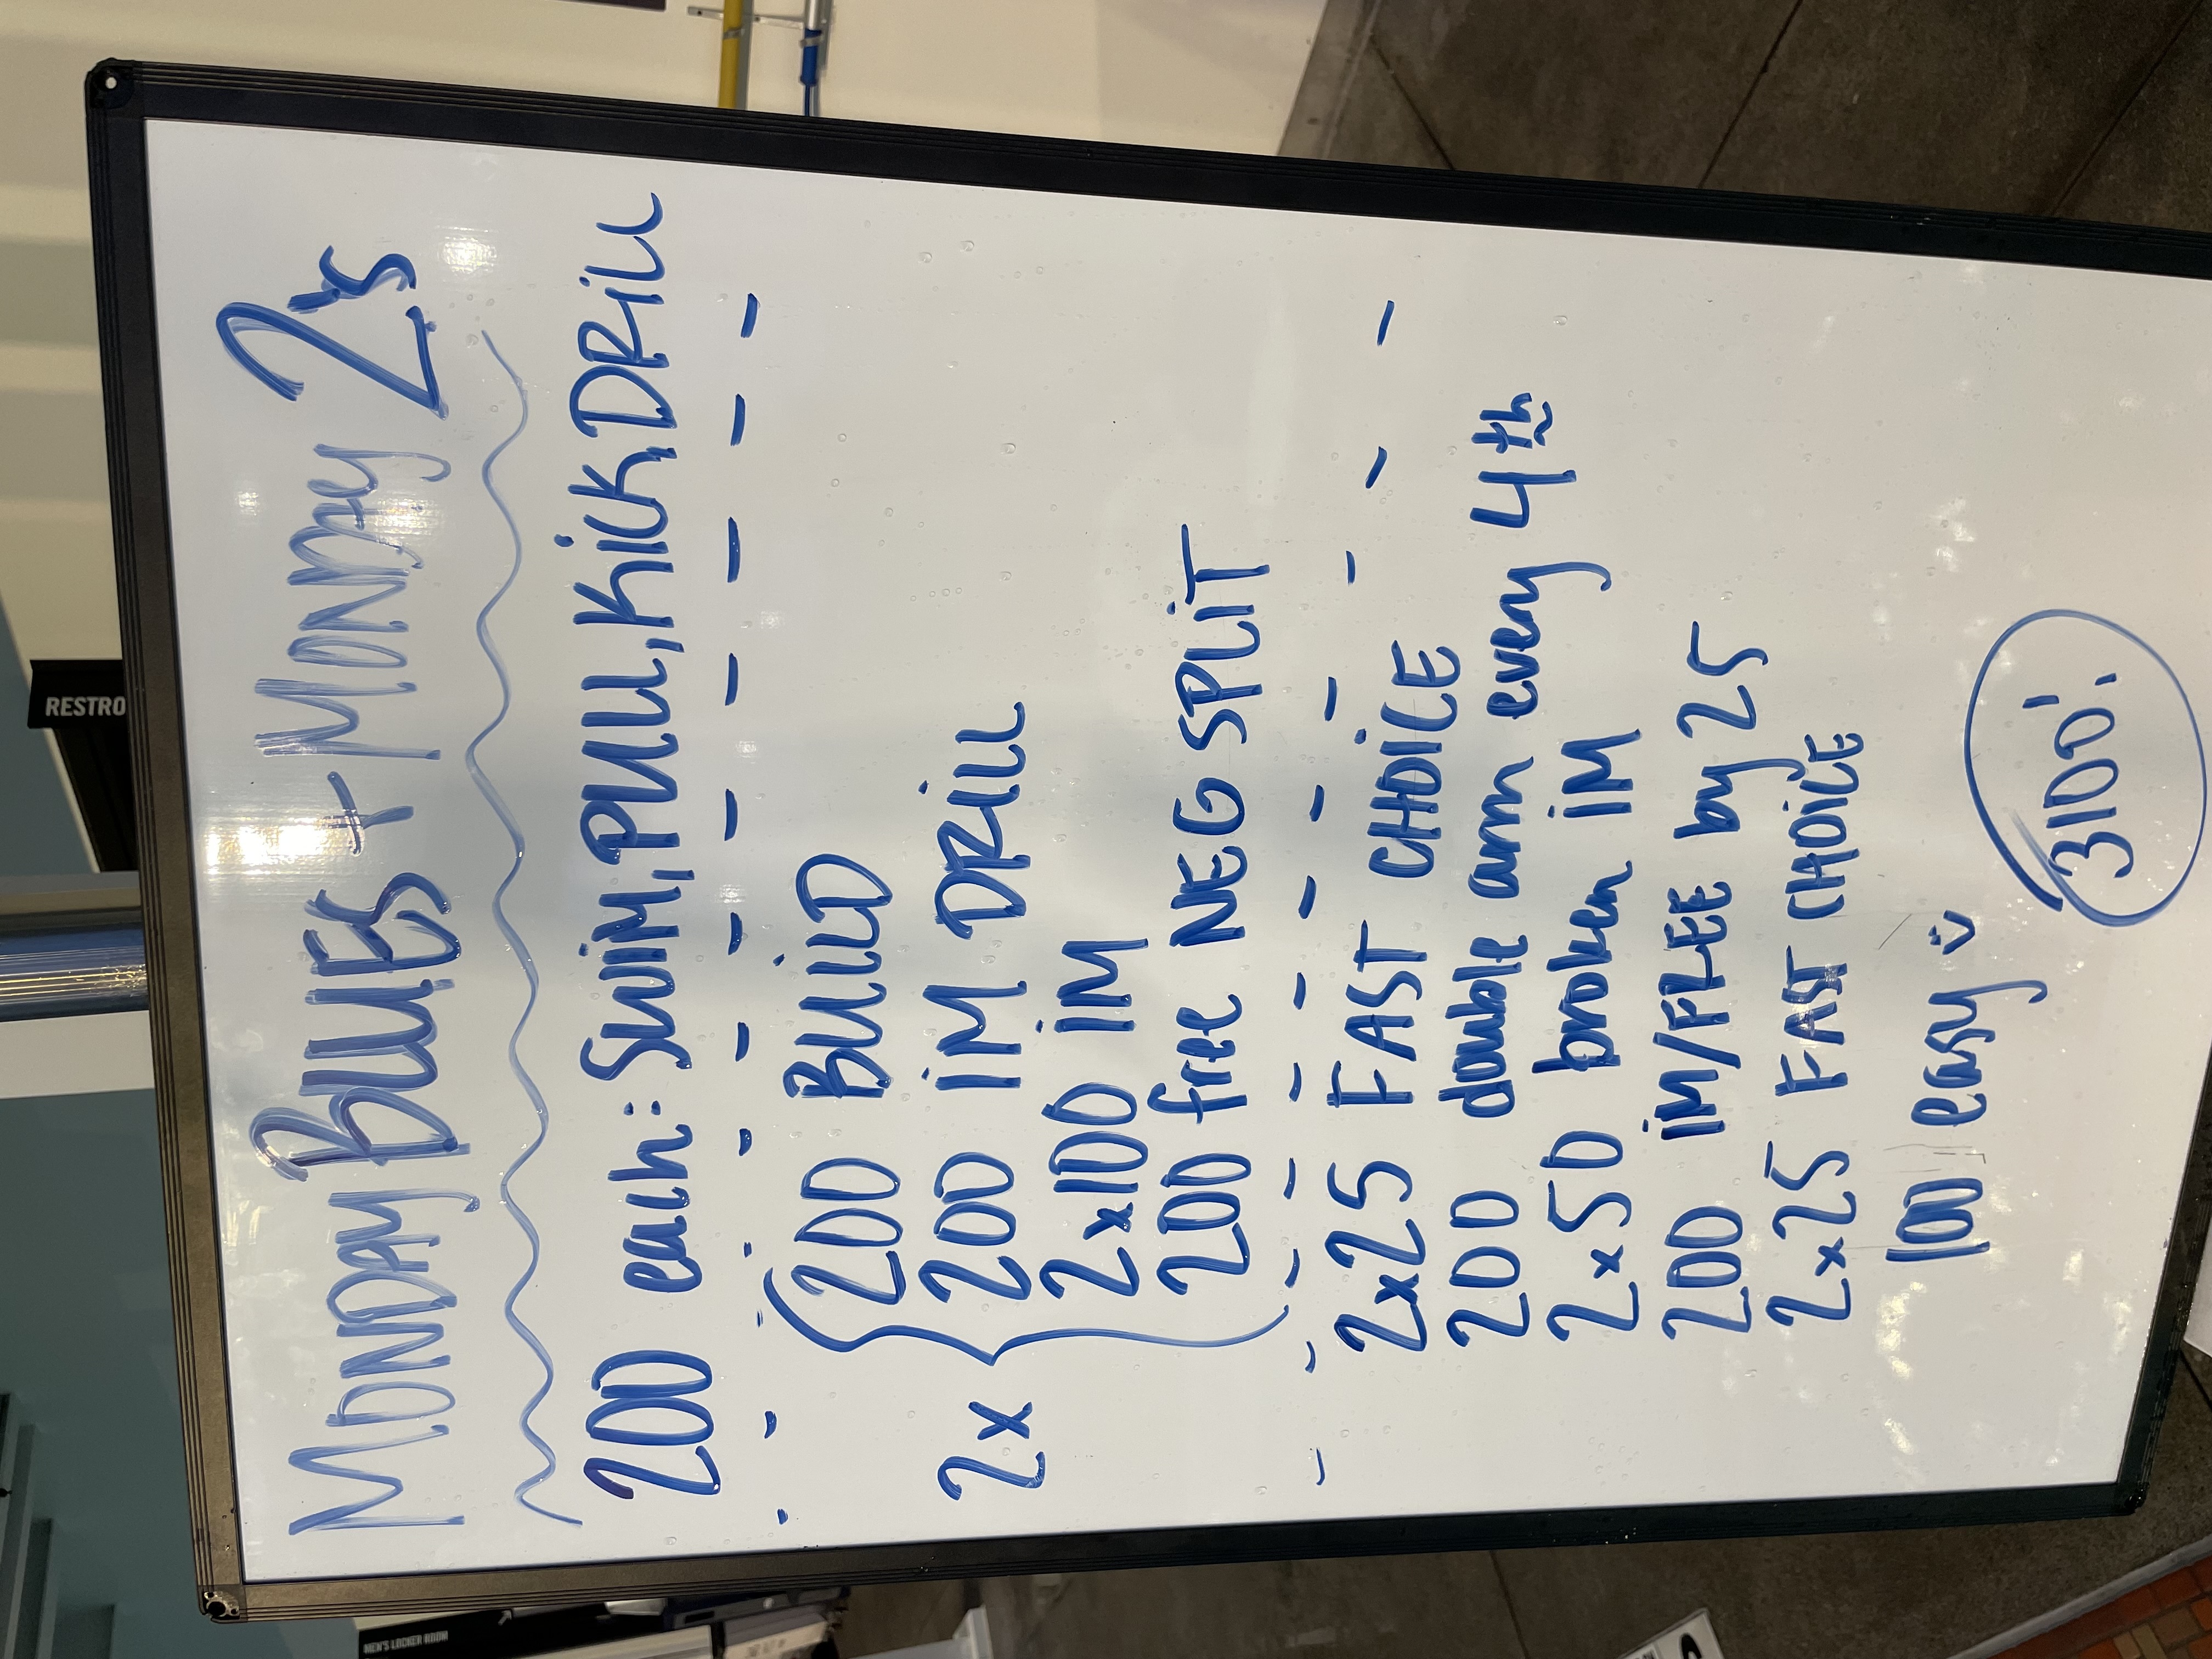 MONDAY BLUES + MONDAY 2's
200 each: SWIM, PULL, KICK, DRILL
2x
200 BUILD
200 IM DRILL
2x100 IM
200 free NEG SPLIT
2x25 FAST CHOICE
200 double arm every 4th
2x50 broken IM
200 im/FREE by 25
2x25 FAST CHOICE
100 easy
3100!
RESTRO
MEN'S LOCKER ROOM